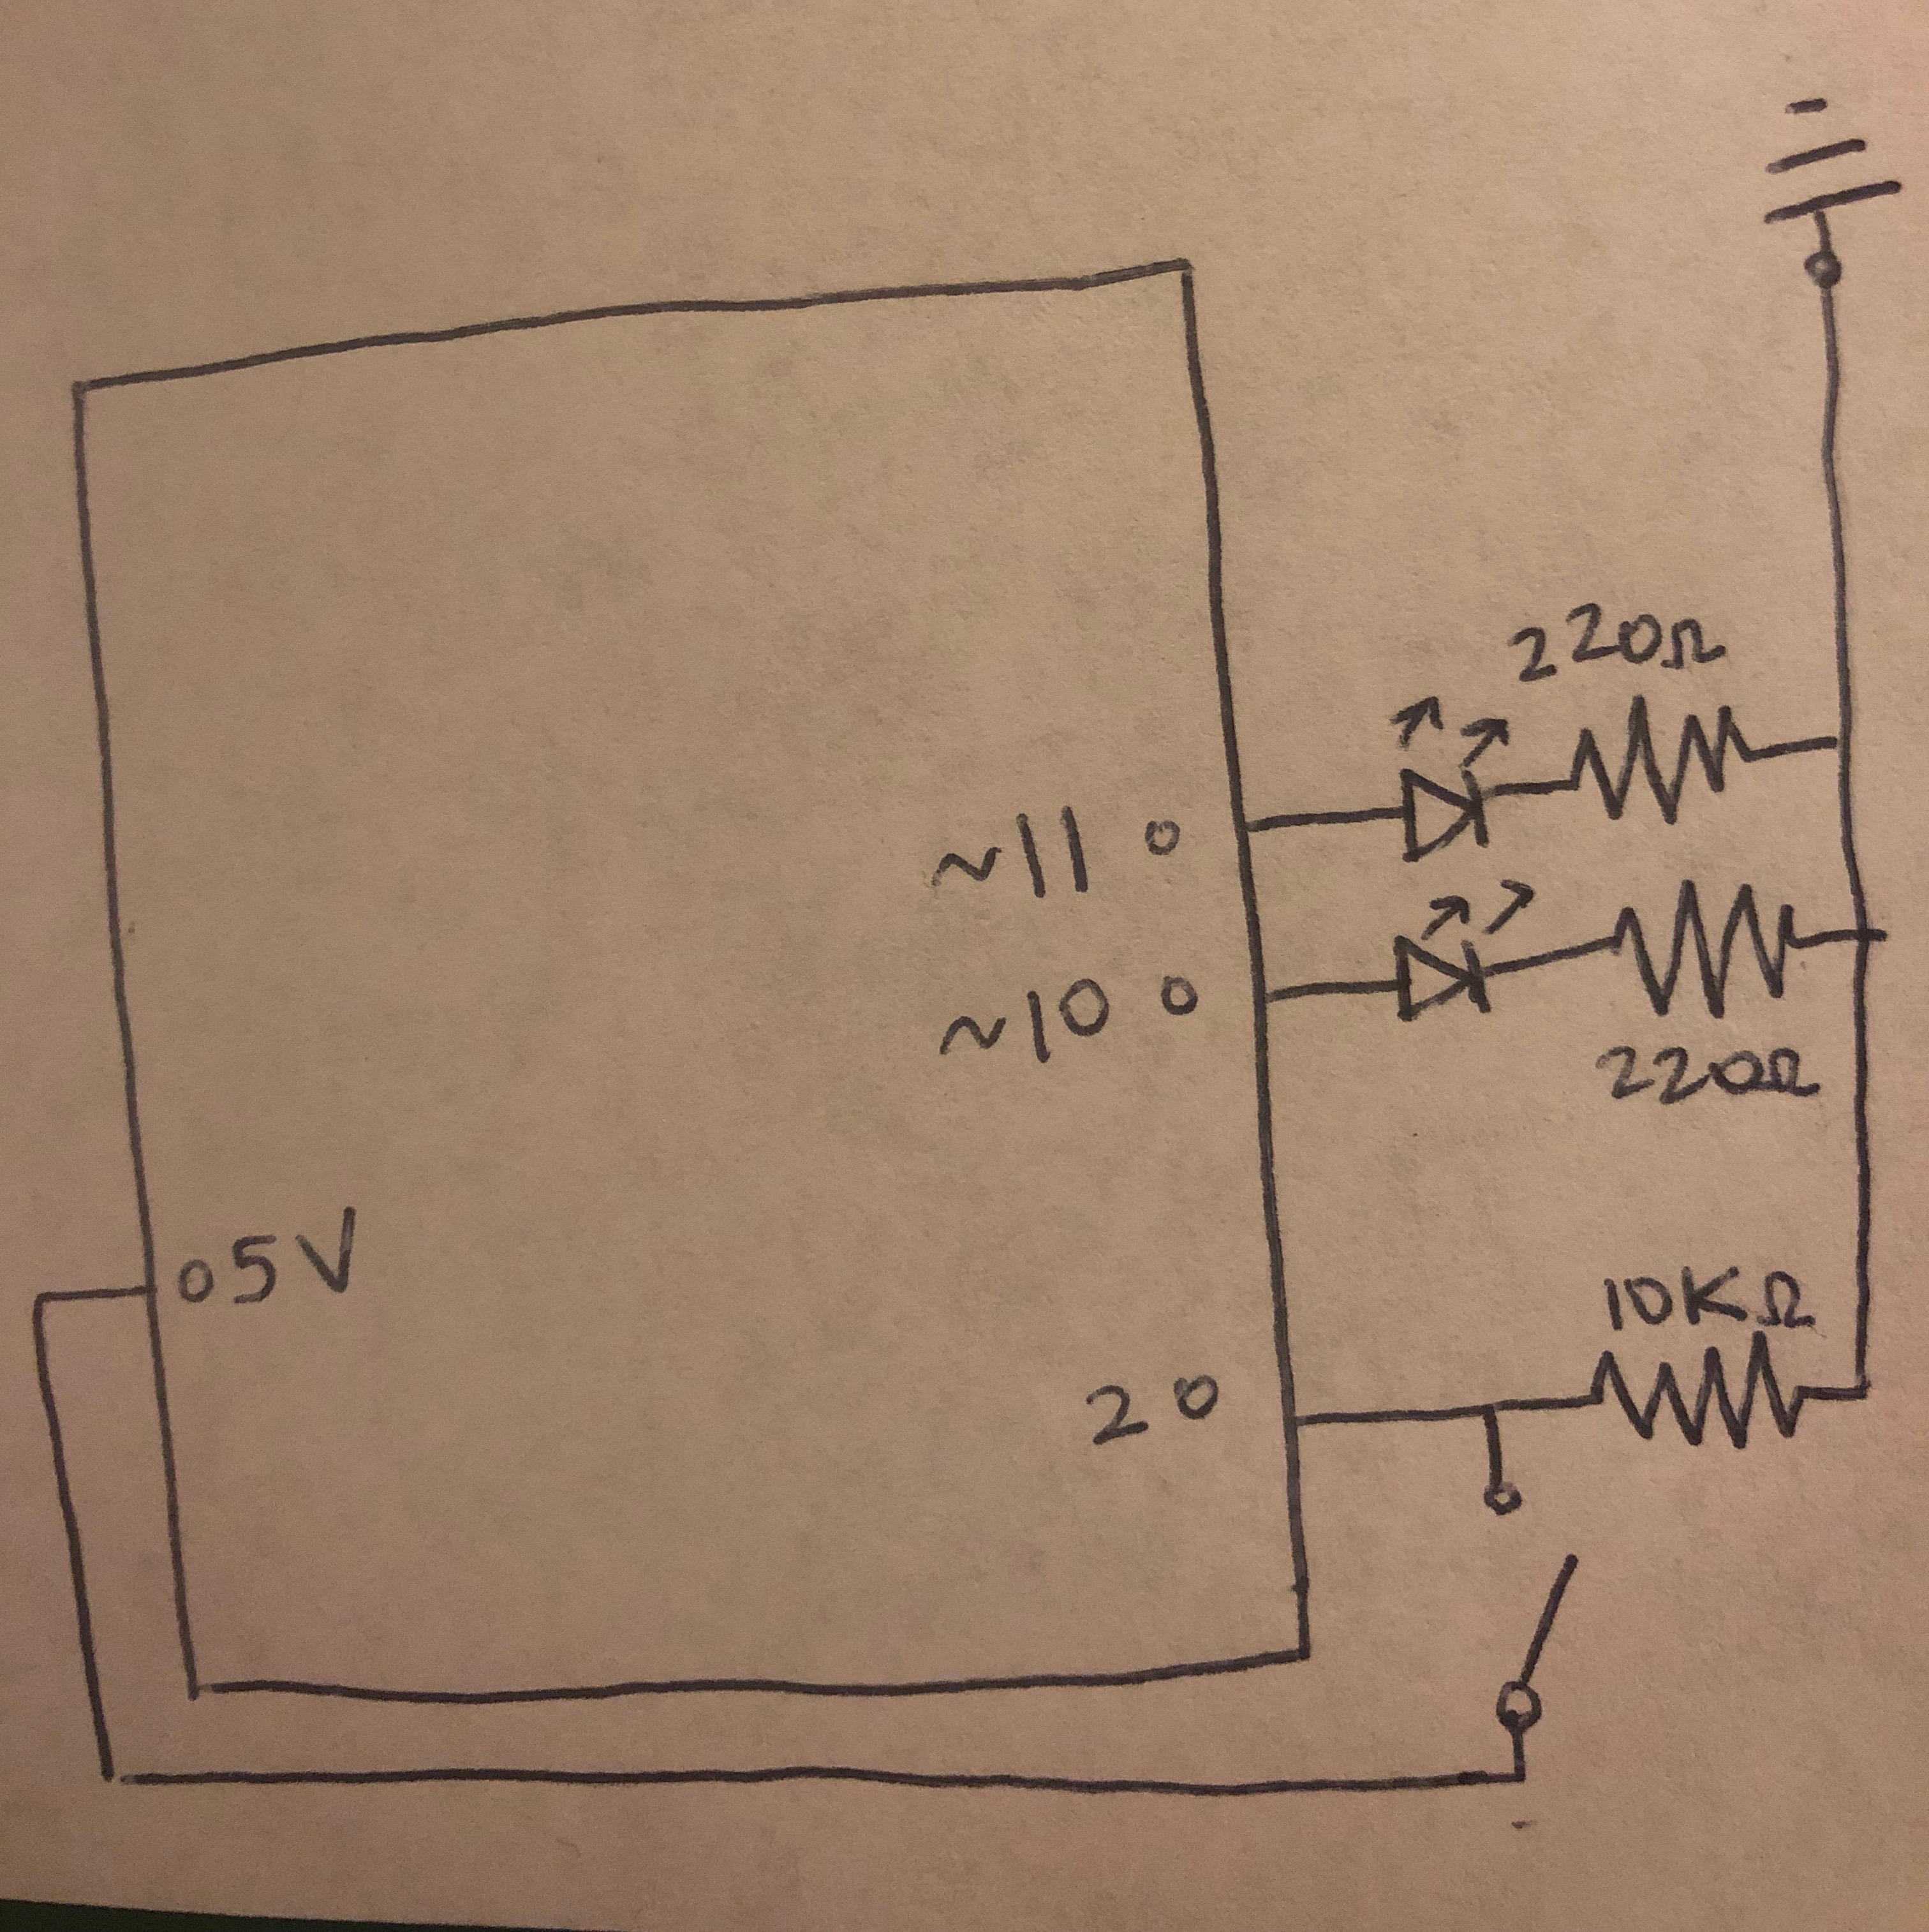 220Ω
~11 o
~10 o
220Ω
o5V
10KΩ
2 o